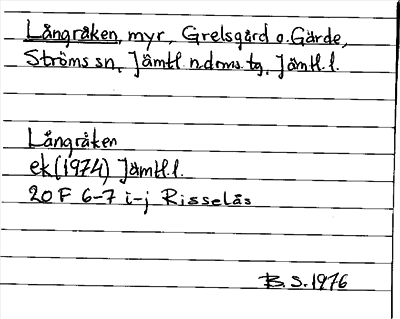 Långråken, myr, Grelsgård o. Gärde,
Ströms sn, Jämtl. n. doms. tg, Jämtl. l.
Långråken
ek (1974) Jämtl. l.
20 F 6-7 i-j Risselås
B. S. 1976